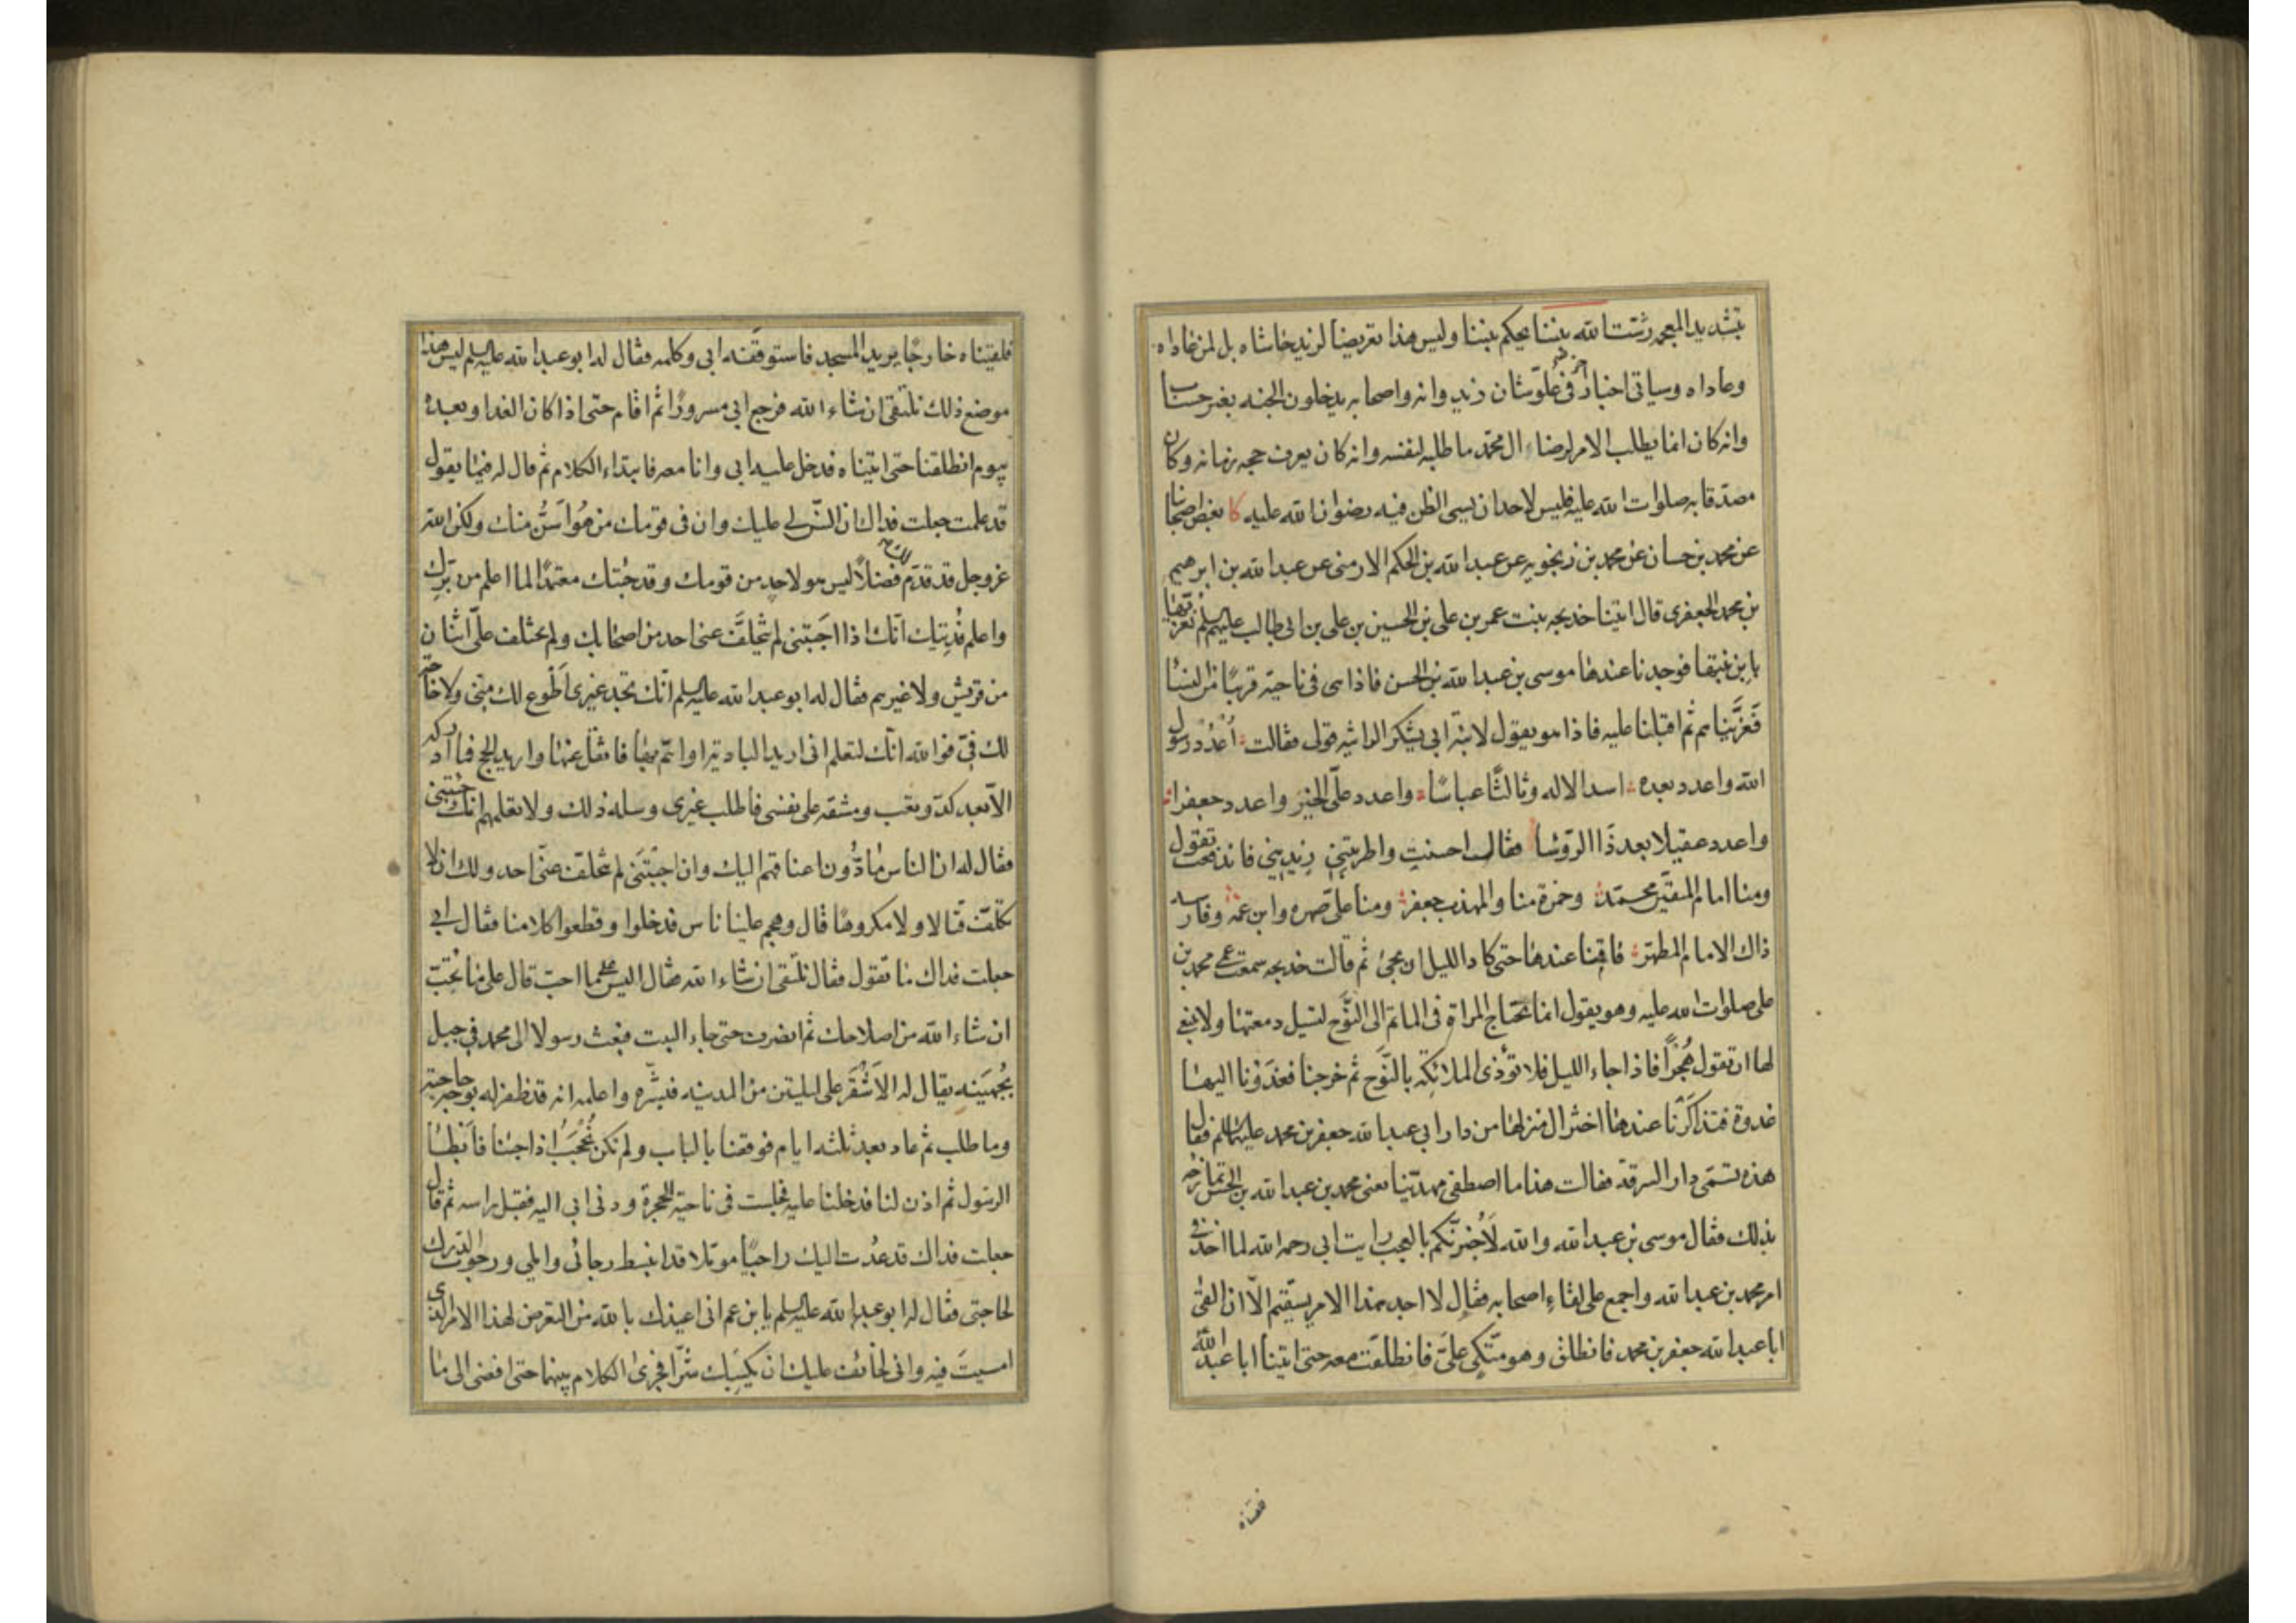 بتشديد المعجمه شتت الله بيننا يحكم بيننا وليس هذا تعريضا لزيد حاشاه بل لمن عاداه
وعاداه وسياتى اخبار اخر فى علو شان زيد وانه واصحابه يدخلون الجنه بغير حساب
وانه كان انما يطلب الامر لرضاء ال محمد ما طلبه لنفسه وانه كان يعرف حجه زمانه وكان
مصدقا به صلوات الله عليه فليس لاحد ان يسئ الظن فيه رضوان الله عليه كا بعض اصحابنا
عن محمد بن حسان عن محمد بن زنجويه عن عبد الله بن الحكم الارمنى عن عبد الله بن ابرهيم
بن محمد الجعفرى قال اتينا خديجه بنت عمر بن على بن الحسين بن على بن ابى طالب عليهم السلم نعزيها
بابن بنتها فوجدنا عندها موسى بن عبد الله بن الحسن فاذا هى فى ناحية قريبا من النساء
فعزيناهم ثم اقبلنا عليه فاذا هو يقول لابنة ابى يشكر الراثيه قولى فقالت اعدد رسول
الله واعدد بعده اسد الاله وثالثا عباسا واعدد على الخير واعدد جعفرا
واعدد عقيلا بعد ذا الرؤسا فقال احسنت واطربتنى زيدينى فاندفعت تقول
ومنا امام المتقين محمد وحمزة منا والمهذب جعفر ومنا على صهره وابن عمه وفارسه
ذاك الامام المطهر فاقمنا عندها حتى كاد الليل ان يجئ ثم قالت خديجه سمعت عمى محمد بن
على صلوات الله عليه وهو يقول انما تحتاج المراة فى الماتم الى النوح لتسيل دمعتها ولا ينبغى
لها ان تقول هجرا فاذا جاء الليل فلا تؤذى الملائكة بالنوح ثم خرجنا فغدونا اليها
غدوة فتذاكرنا عندها اختزال منزلها من دار ابى عبد الله جعفر بن محمد عليهما السلم فقال
هذه تسمى دار السرقة فقالت هذا ما اصطفى مهدينا تعنى محمد بن عبد الله بن الحسن تمازحه
بذلك فقال موسى بن عبد الله والله لاخبرنكم بالعجب رايت ابى رحمه الله لما اخذ فى
امر محمد بن عبد الله واجمع على لقاء اصحابه فقال لا اجد هذا الامر يستقيم الا ان القى
ابا عبد الله جعفر بن محمد فانطلق وهو متكى على فانطلقت معه حتى اتينا ابا عبد الله
فلقيناه
فلقيناه خارجا يريد المسجد فاستوقفه ابى وكلمه فقال له ابو عبد الله عليه السلم ليس هذا
موضع ذلك نلتقى ان شاء الله فرجع ابى مسرورا ثم اقام حتى اذا كان الغد او بعده
بيوم انطلقنا حتى اتيناه فدخل عليه ابى وانا معه فابتداء الكلام ثم قال له فيما يقول
قد علمت جعلت فداك ان السن لى عليك وان فى قومك من هو اسن منك ولكن الله
عز وجل قد قدم لك فضلا ليس هو لاحد من قومك وقد جئتك معتمدا لما اعلم من برك
واعلم فديتك انك اذا اجبتنى لم يتخلف عنى احد من اصحابك ولم يختلف على اثنان
من قريش ولا غيرهم فقال له ابو عبد الله عليه السلم انك تجد غيرى اطوع لك منى ولا حاجة
لك فى فوالله انك لتعلم انى اريد البادية او اهم بها فاثقل عنها واريد الحج فما ادركه
الا بعد كد وتعب ومشقه على نفسى فاطلب غيرى وسله ذلك ولا تعلمهم انك جئتنى
فقال له ان الناس مادون اعناقهم اليك وان اجبتنى لم يتخلف عنى احد ولك ان لا
تكلف قتالا ولا مكروها قال وهجم علينا ناس فدخلوا وقطعوا كلامنا فقال ابى
جعلت فداك ما تقول فقال نلتقى ان شاء الله فقال اليس على ما احب قال على ما تحب
ان شاء الله من اصلاحك ثم انصرف حتى جاء البيت فبعث رسولا الى محمد فى جبل
بجهينه يقال له الاشقر على ليلتين من المدينه فبشره واعلمه انه قد ظفر له بوجه حاجته
وما طلب ثم عاد بعد ثلثه ايام فوقفنا بالباب ولم نكن نحجب اذا جئنا فابطا
الرسول ثم اذن لنا فدخلنا عليه فجلست فى ناحية الحجرة ودنى ابى اليه فقبل راسه ثم قال
جعلت فداك قد عدت اليك راجيا مؤملا قد انبسط رجائى واملى ورجوت الدرك
لحاجتى فقال له ابو عبد الله عليه السلم يابن عم انى اعيذك بالله من التعرض لهذا الامر الذى
امسيت فيه وانى لخائف عليك ان يكسبك شرا فجرى الكلام بينهما حتى افضى الى ما